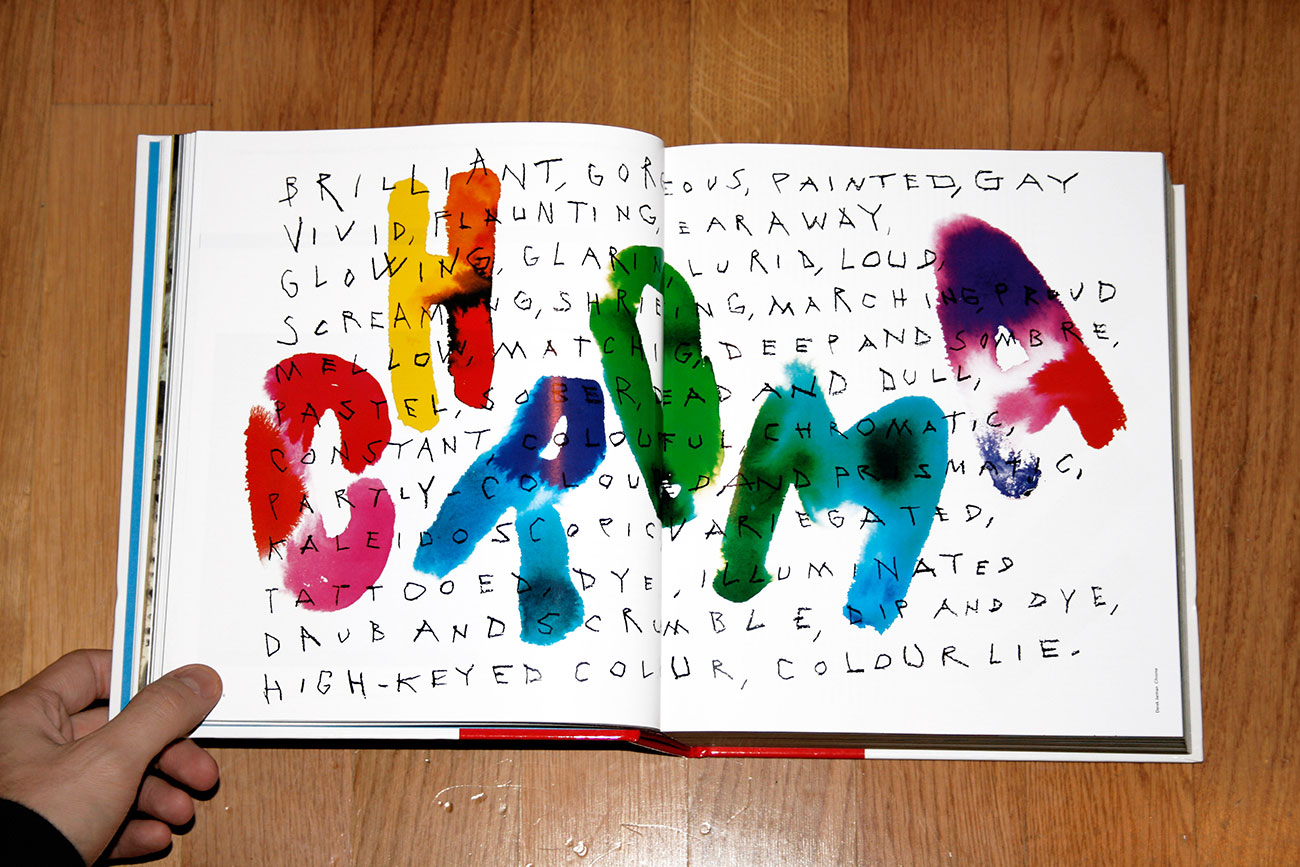 BRILLIANT, GORGEOUS, PAINTED, GAY
VIVID, FLAUNTING, EARAWAY,
GLOWING, GLARIN, LURID, LOUD,
SCREAMING, SHRIEING, MARCHING, PROUD
MELLOW, MATCHIG, DEEP AND SOMBRE,
PASTEL, SOBER, DEAD AND DULL,
CONSTANT, COLOUFUL, CHROMATIC,
PARTLY-COLOUED, AND PRISMATIC,
KALEIDOSCOPIC VARIEGATED,
TATTOOED, DYE, ILLUMINATED
DAUB AND SCRUMBLE, DIP AND DYE,
HIGH-KEYED COLUR, COLOUR LIE.
CHROMA
Derek Jarman, Chroma